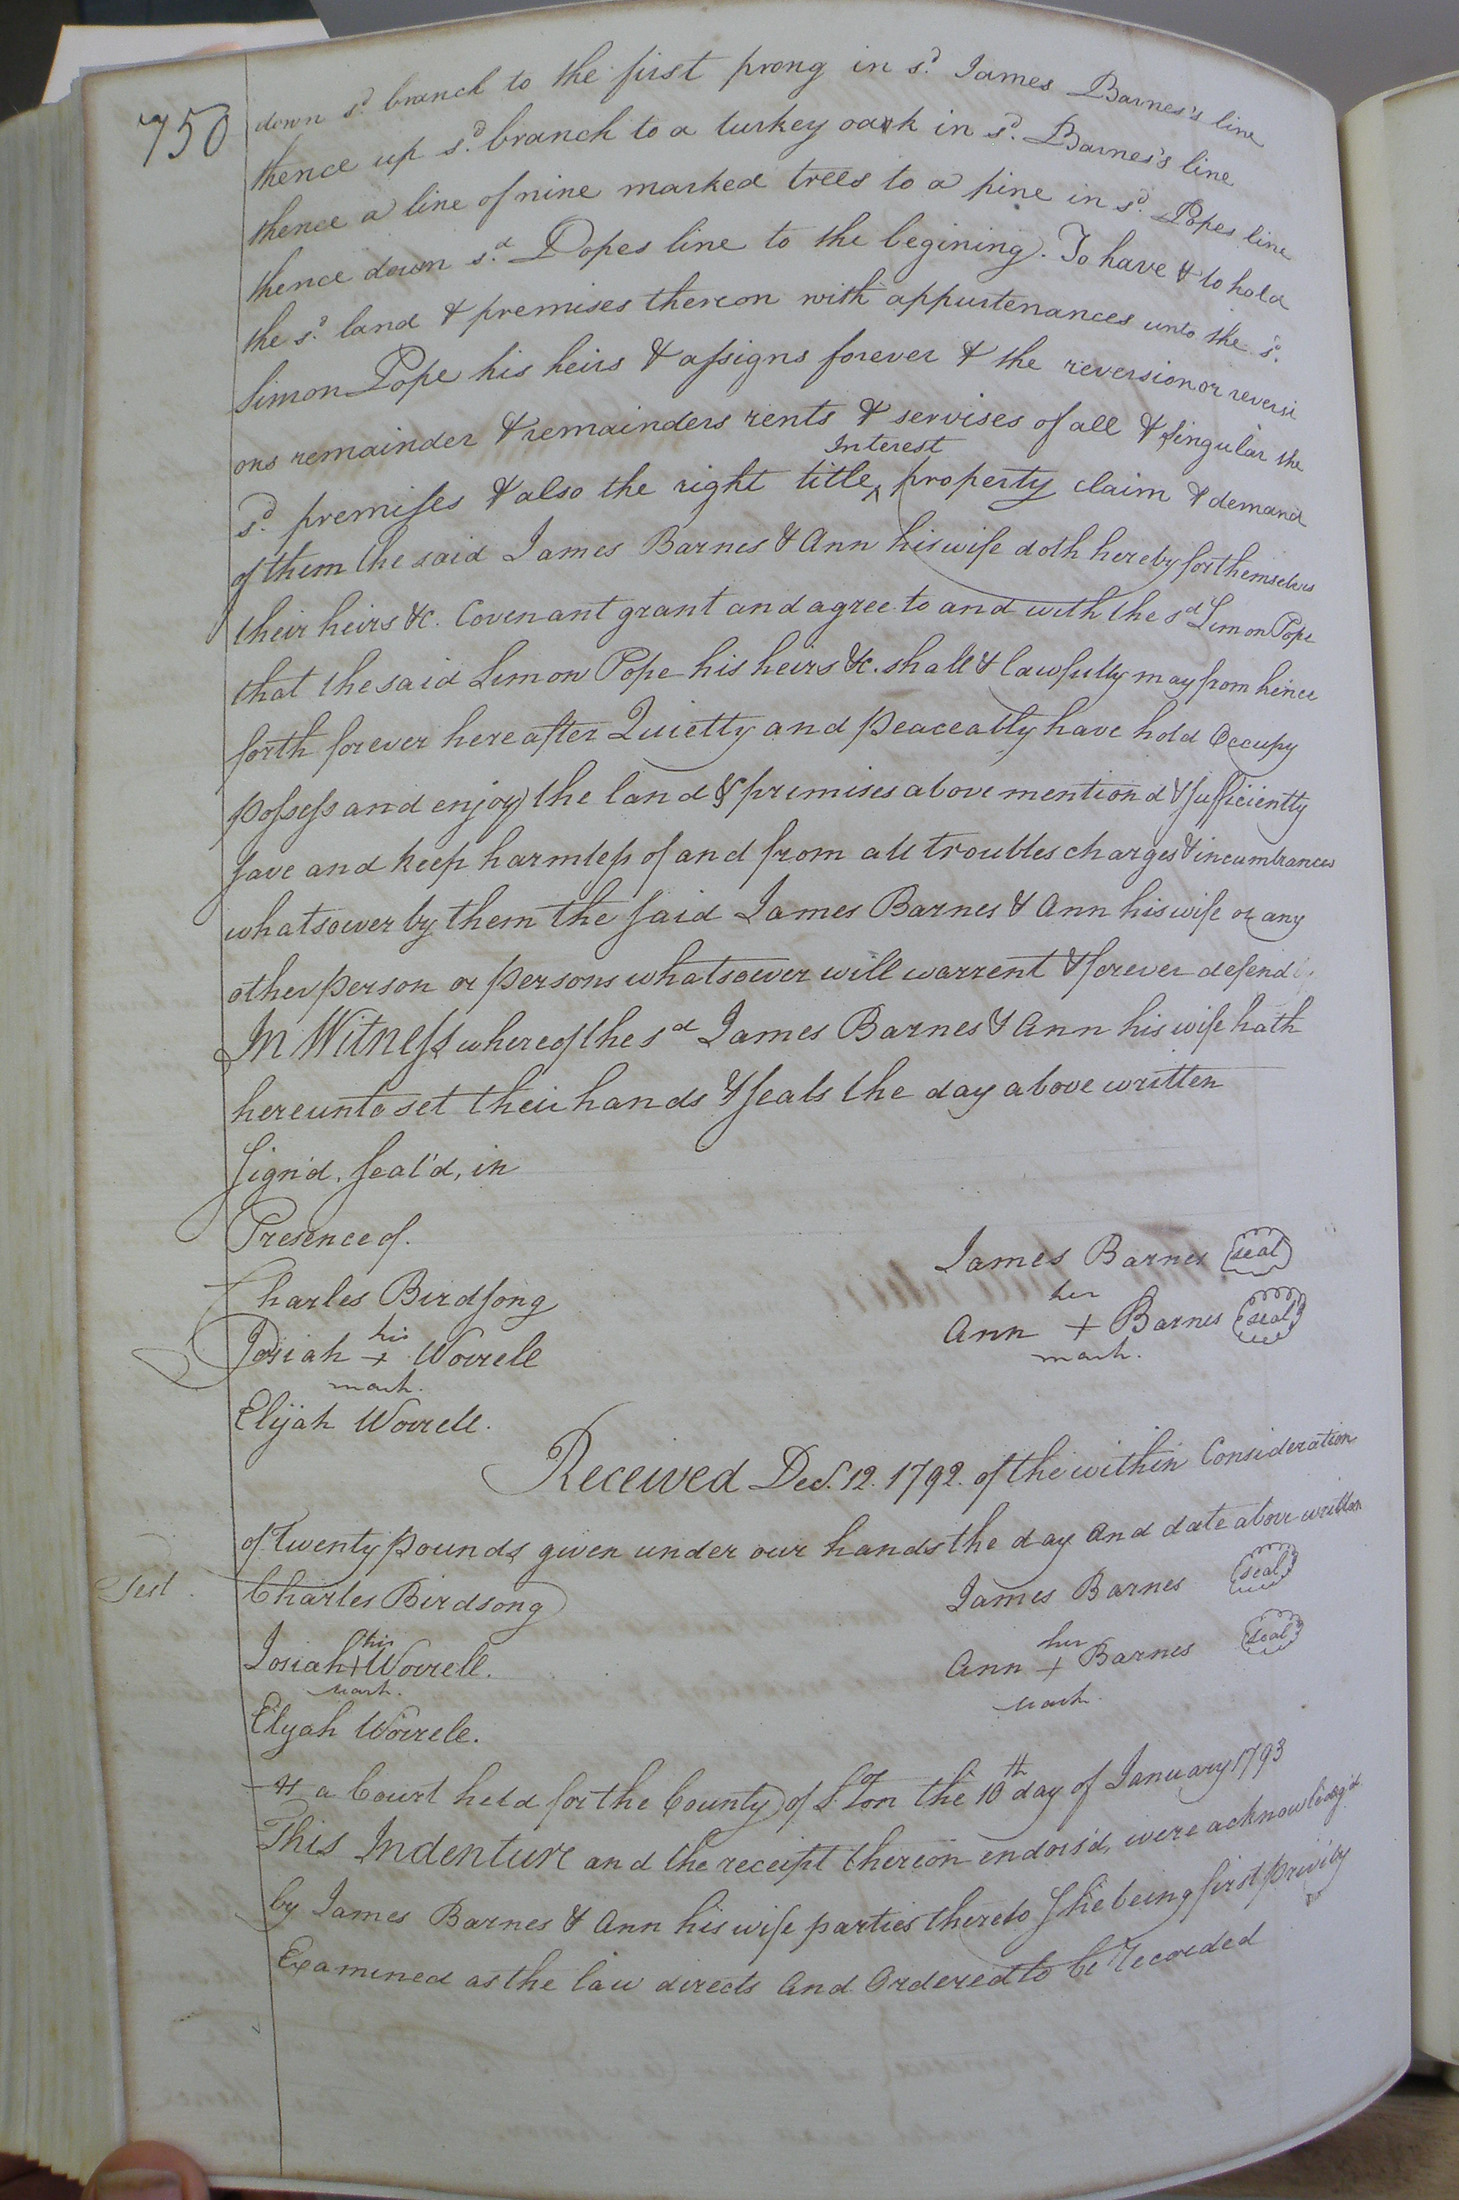 750
down sd. branch to the first prong in sd. James Barnes's line
thence up sd. branch to a turkey oak in sd. Barnes's line
thence a line of nine marked trees to a pine in sd. Popes line
thence down sd. Popes line to the begining. To have & to hold
the sd. land & premises thereon with appurtenances unto the sd.
Simon Pope his heirs & assigns forever & the reversion or reversi
ons remainder & remainders rents & servises of all & singular the
Interest
sd. premises & also the right title ^ property claim & demand
of them the said James Barnes & Ann his wife doth hereby for themselves
their heirs &c. Covenant grant and agree to and with the sd Simon Pope
that the said Simon Pope his heirs &c. shall & lawfully may from hence
forth forever hereafter Quietly and peaceably have hold Occupy
possess and enjoy the land & premises above mentiond & sufficiently
save and keep harmless of and from all troubles charges & incumbrances
whatsoever by them the said James Barnes & Ann his wife or any
other person or persons whatsoever will warrent & forever defend
In Witness whereof the sd James Barnes & Ann his wife hath
hereunto set their hands & seals the day above written
Sign'd, Seal'd, in
Presence of.
James Barnes seal
Charles Birdsong
her
Ann + Barnes seal
mark.
his
Josiah + Worrell
mark.
Elijah Worrell.
Received Dec. 12. 1792. of the within Consideration
of twenty pounds given under our hands the day and date above written
Test. Charles Birdsong
James Barnes seal
his
Josiah + Worrell.
mark.
her
Ann + Barnes seal
mark.
Elijah Worrell.
At a Court held for the County of S.ton the 10th day of January 1793
This Indenture and the receipt thereon endors'd, were acknowledg'd
by James Barnes & Ann his wife parties thereto She being first privily
Examined as the law directs and Ordered to be recorded